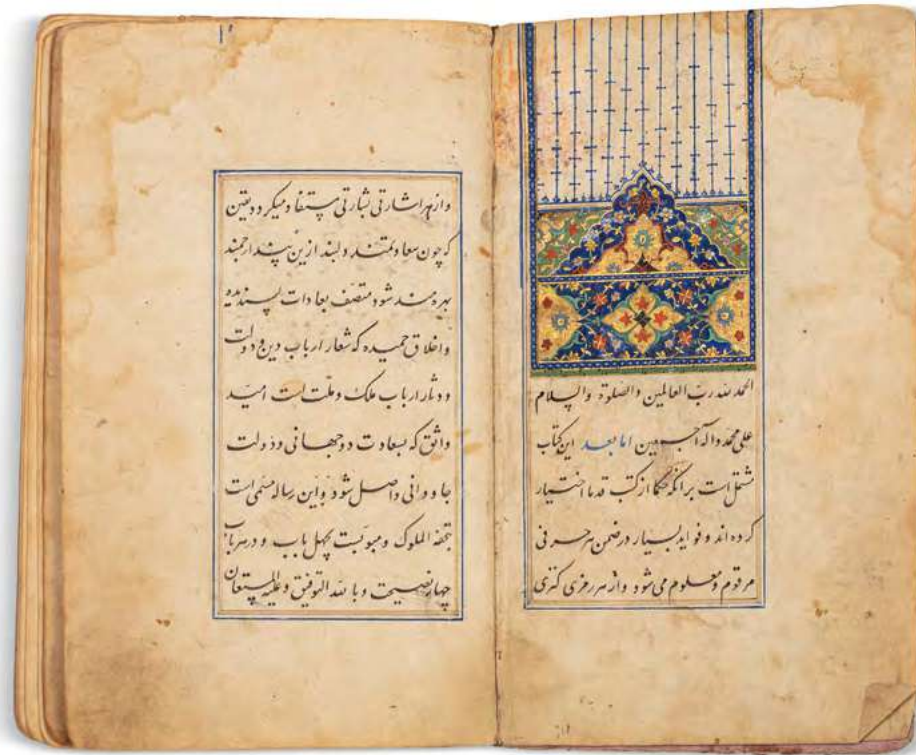 الحمد لله رب العالمین والصلوة والسلام
علی محمد واله اجمعین اما بعد این کتاب
مشتمل است برانکه حکما از کتب قدما اختیار
کرده اند و فواید بسیار در ضمن هر حرفی
مرقوم و معلوم می شود واز هر رمزی کنزی
واز هر اشارتی بشارتی مستفاد میکردد یقین
که چون سعادتمند دلبند ازین پند ارجمند
بهره مند شود متصف بعادات پسندیده
واخلاق حمیده که شعار ارباب دین و دولت
ودثار ارباب ملک و ملت است امید
واثق که بسعادت دوجهانی ودولت
جاودانی واصل شود واین رساله مسمی است
بتحفه الملوک ومبوبست بچهل باب و در هر باب
چهار نصیحت وبالله التوفیق وعلیه المستعان